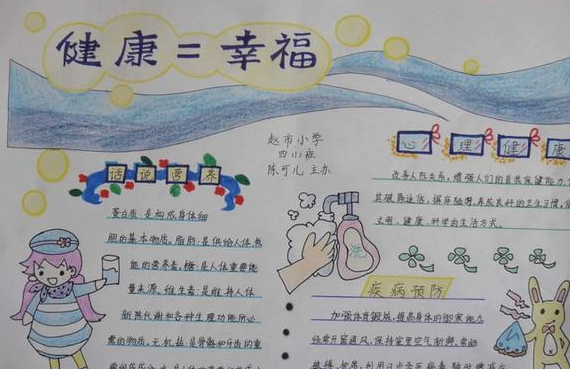 健康=幸福
赵市小学
四小班
陈可儿 主办
话说营养
蛋白质:是构成身体细
胞的基本物质,脂肪:是供给人体热
能的营养素,糖:是人体重要能
量来源,维生素:是维持人体
新陈代谢和各种生理功能所必
需的物质,无机盐:是骨骼和牙齿的重
心理健康
改善人际关系,增强人们的自我保健能力,
其破除迷信,摒弃陋习,养成良好的卫生习惯,
文明、健康、科学的生活方式。
洗
疾病预防
加强体育锻炼,提高身体的御寒能力
经常开窗通风,保持家里空气新鲜,常晒